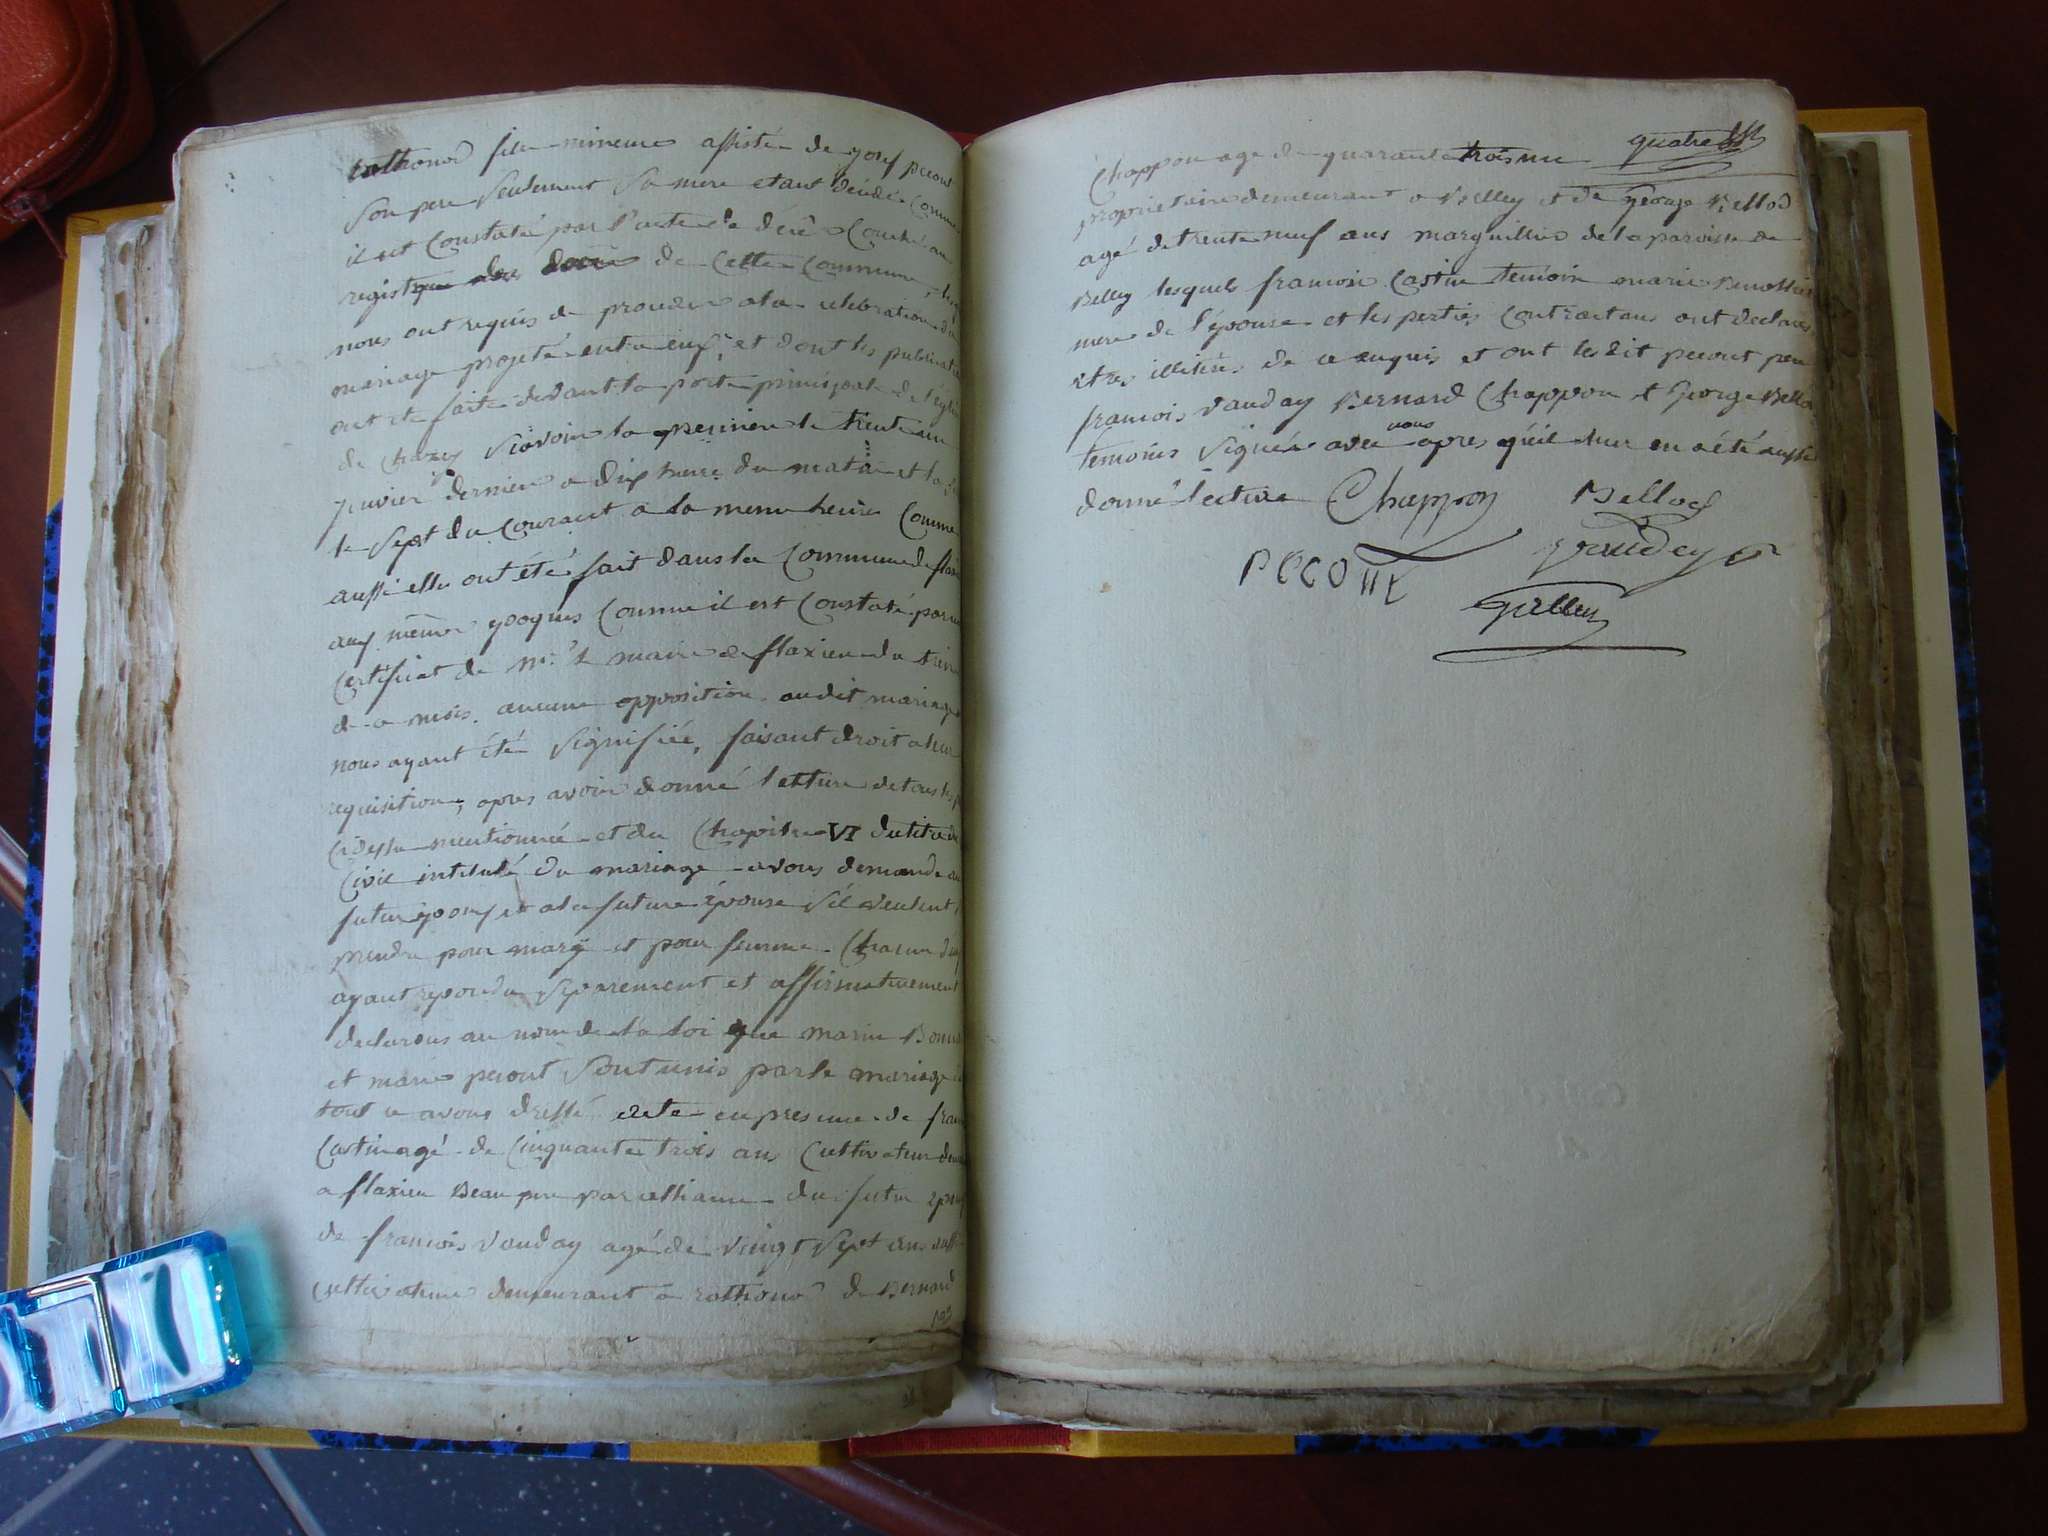 rothonod fille mineure assistée de josef pecout
Son pere Seulement Sa mere etant décédée Comme
il est Constaté par l'acte de décè Couché au
registre de cette Commune,
nous ont requis de proceder a la celebration du
mariage projeté entre eux, et dont les publicatio
ont ete faite devant la porte principale de l'églis
de Chazey Sçavoir la premiere le trente un
janvier dernier a dix heure du matin et la
le Sept du Courant a la meme heure Comme
aussi elle ont été fait dans la Commune de flaxi
aux même epoques Comme il est Constaté par un
Certificat de Mr. le maire de flaxieu du
de ce mois. aucune opposition audit mariage
nous ayant été Signifiée, faisant droit a leur
requisition, apres avoir donné lecture de tous les p
Cidessu mentionnée et du Chapitre VI du titre du
Civil intitulé du mariage avons demandé au
futur epoux et a la future épouse S'il veulent
prendre pour mary et pour femme. Chacun d'eux
ayant repondu Séparement et affirmativement
declarons au nom de la loi que marin Bonn
et marie pecout Sont unis par le mariage
tout ce avons dressé acte en presence de fran
Castin agé de Cinquante trois ans Cultivateur dem
a flaxieu Beau pere par alliance du futur epoux
de francois Vauday agé de Vingt Sept ans aussi
cultivateur demeurant a rothonod de Bernard
Chappon age de quarante trois quatre
proprietaire demeurant a Belley et de George Bellod
agé de trente neuf ans marguillier de la paroisse de
Belley lesquels francois Castin temoin marie
mere de l'épouse et les parties Contractans ont declarés
etres illitérés de ce enquis et ont les dit pecout pere
francois Vauday Bernard Chappon et George Bellod
temoins Signés avec nous apres qu'il leur en a été aussi
donné lecture Chappon Bellod
PECOUT Vaudey